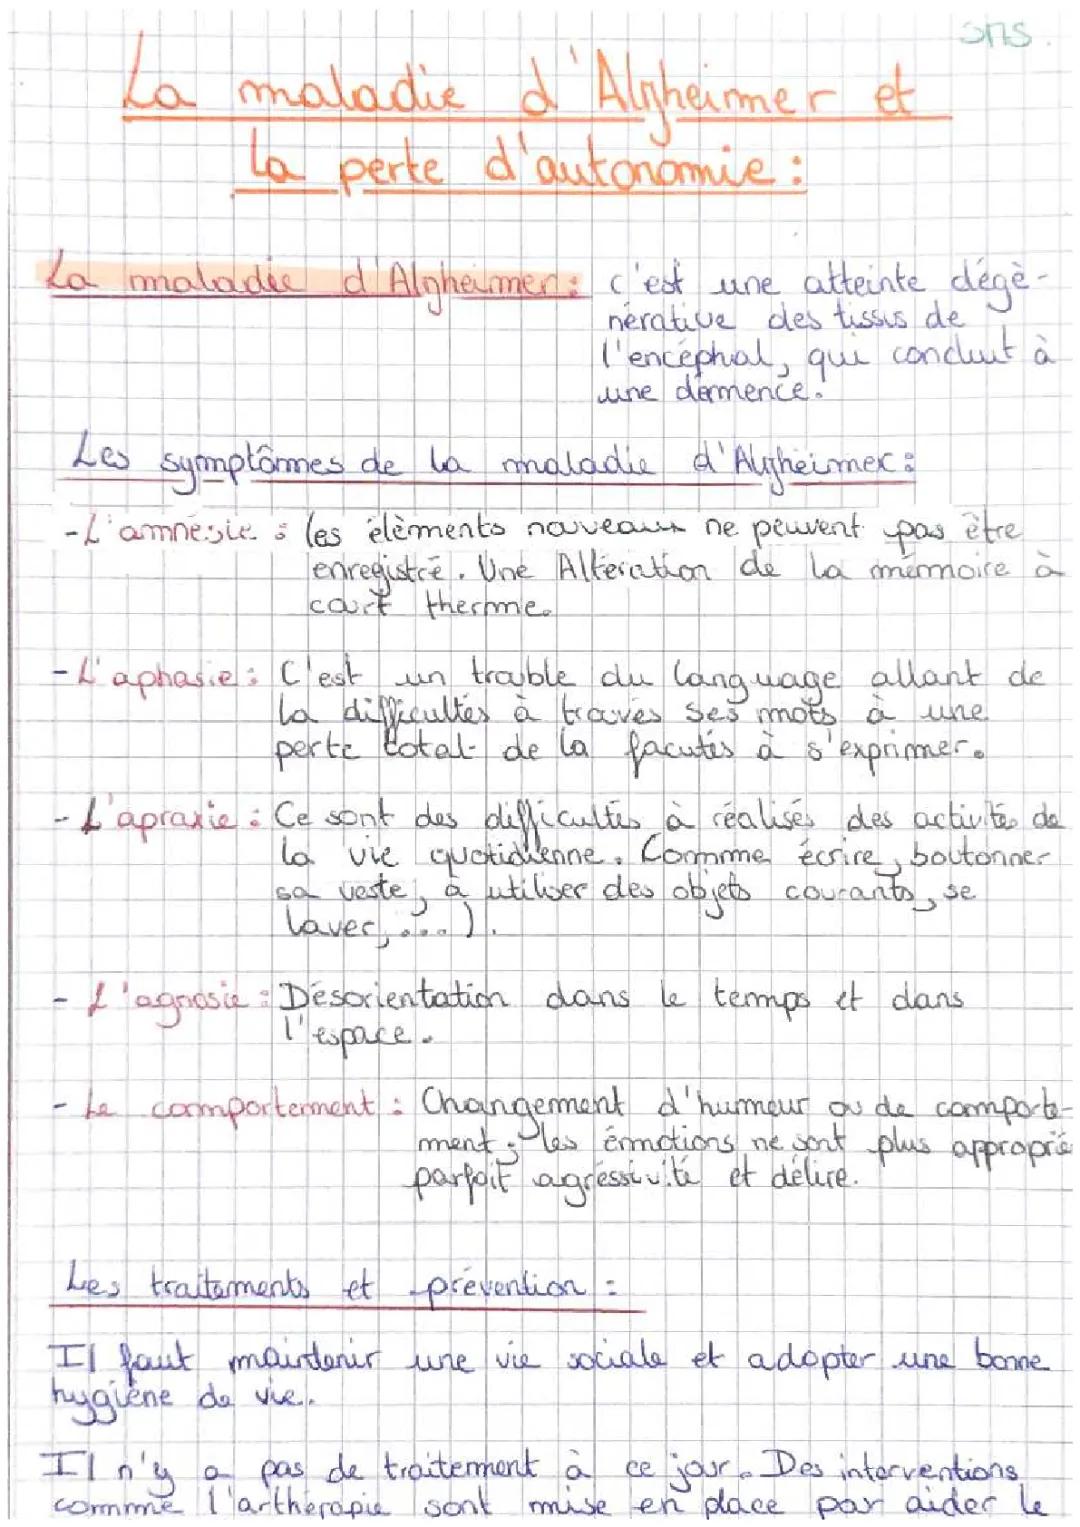 sms.
La maladie d'Alzheimer et
la perte d'autonomie :
La maladie d'Alzheimer : c'est une atteinte dégè-
nérative des tissus de
l'encéphal, qui conduit à
une démence.
Les symptômes de la maladie d'Alzheimer :
- L'amnésie : les élèments nouveaux ne peuvent pas être
enregistré. Une Altération de la mémoire à
court therme.
- L'aphasie : C'est un trouble du language allant de
la difficultés à travès ses mots à une
perte total de la facutés à s'exprimer.
- L'apraxie : Ce sont des difficultés à réalisés des activités de
la vie quotidienne. Comme écrire, boutonner
sa veste, à utiliser des objets courants, se
laver, ...).
- L'agnosie : Désorientation dans le temps et dans
l'espace.
- Le comportement : Changement d'humeur ou de comporte-
ment ; les émotions ne sont plus approprié
parfoit agréssivité et délire.
Les traitements et prévention :
Il faut maintenir une vie sociale et adopter une bonne
hygiène de vie.
Il n'y a pas de traitement à ce jour. Des interventions
comme l'arthérapie sont mise en place par aider le